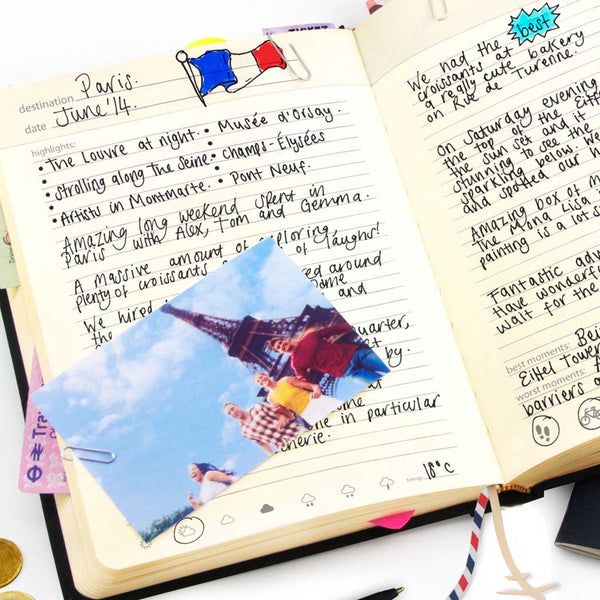 TICKET
destination Paris.
date June '14.
highlights:
• The Louvre at night. • Musée d'Orsay.
• Strolling along the Seine. • Champs-Élysées
• Artists in Montmarte. • Pont Neuf.
Amazing long weekend spent in
Paris with Alex, Tom and Gemma.
A massive amount of exploring,
plenty of croissants and of laughs!
We hired around
the some
and
quarter,
by.
one in particular
temp 18°c
best
We had the
croissants at
a really cute bakery
on Rue de Turenne.
On Saturday evening
the top of the Eiff
the sun set and it
stunning to see the
sparkling below. We
and spotted our h
Amazing box of m
The Mona Lisa
painting is a lot s
Fantastic adv
Have wonderfu
wait for the
best moments: Bei
Eiffel Tower
worst moments: A
barriers a
Tra